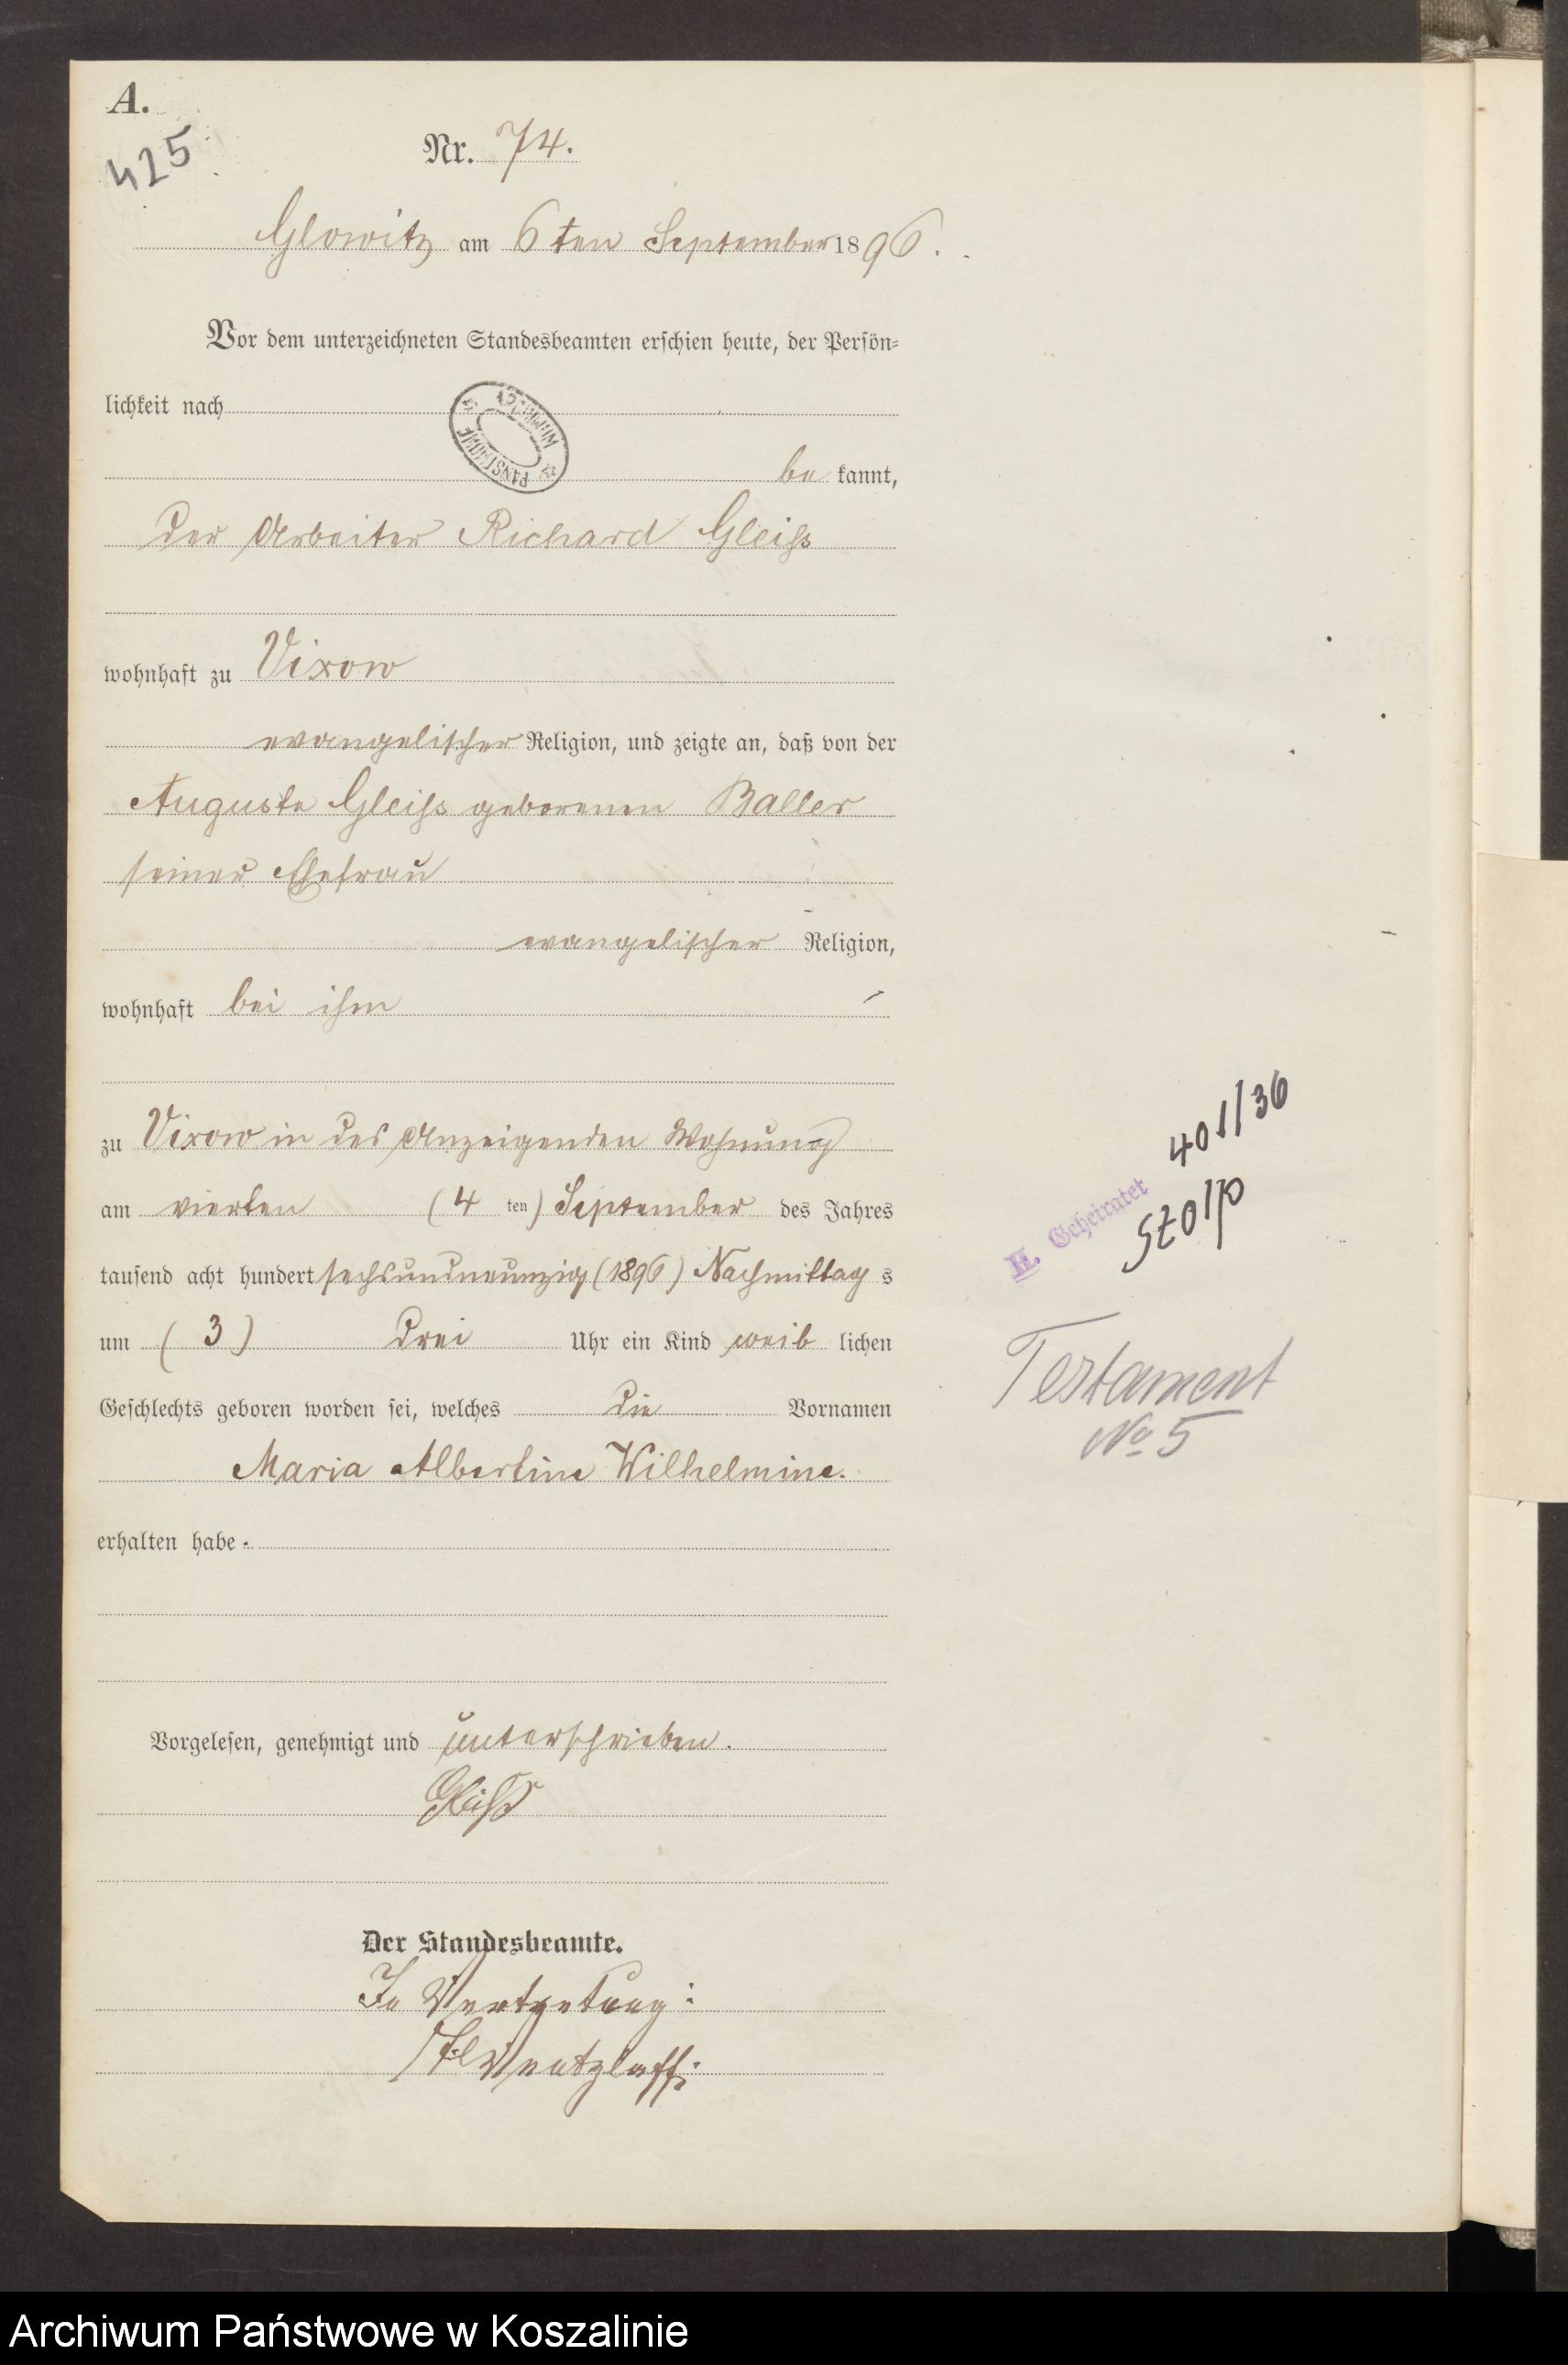 A.
425
Nr. 74.
Glowitz am 6ten September 1896.
Vor dem unterzeichneten Standesbeamten erschien heute, der Persön=
lichkeit nach
ARCHIWUM PAŃSTWOWE
be kannt,
der Arbeiter Richard Gleiß
wohnhaft zu Vixow
evangelischer Religion, und zeigte an, daß von der
Auguste Gleiß geborenen Baller
seiner Ehefrau
evangelischer Religion,
wohnhaft bei ihm
zu Vixow in des Anzeigenden Wohnung
am vierten (4 ten) September des Jahres
tausend acht hundert sechsundneunzig (1896) Nachmittag s
um (3) drei Uhr ein Kind weib lichen
Geschlechts geboren worden sei, welches die Vornamen
Maria Albertine Wilhelmine.
erhalten habe.
401/36
II. Geheiratet Stolp
Testament
No 5
Vorgelesen, genehmigt und unterschrieben.
Gleiß
Der Standesbeamte.
In Vertretung:
Ventzlaff.
Archiwum Państwowe w Koszalinie